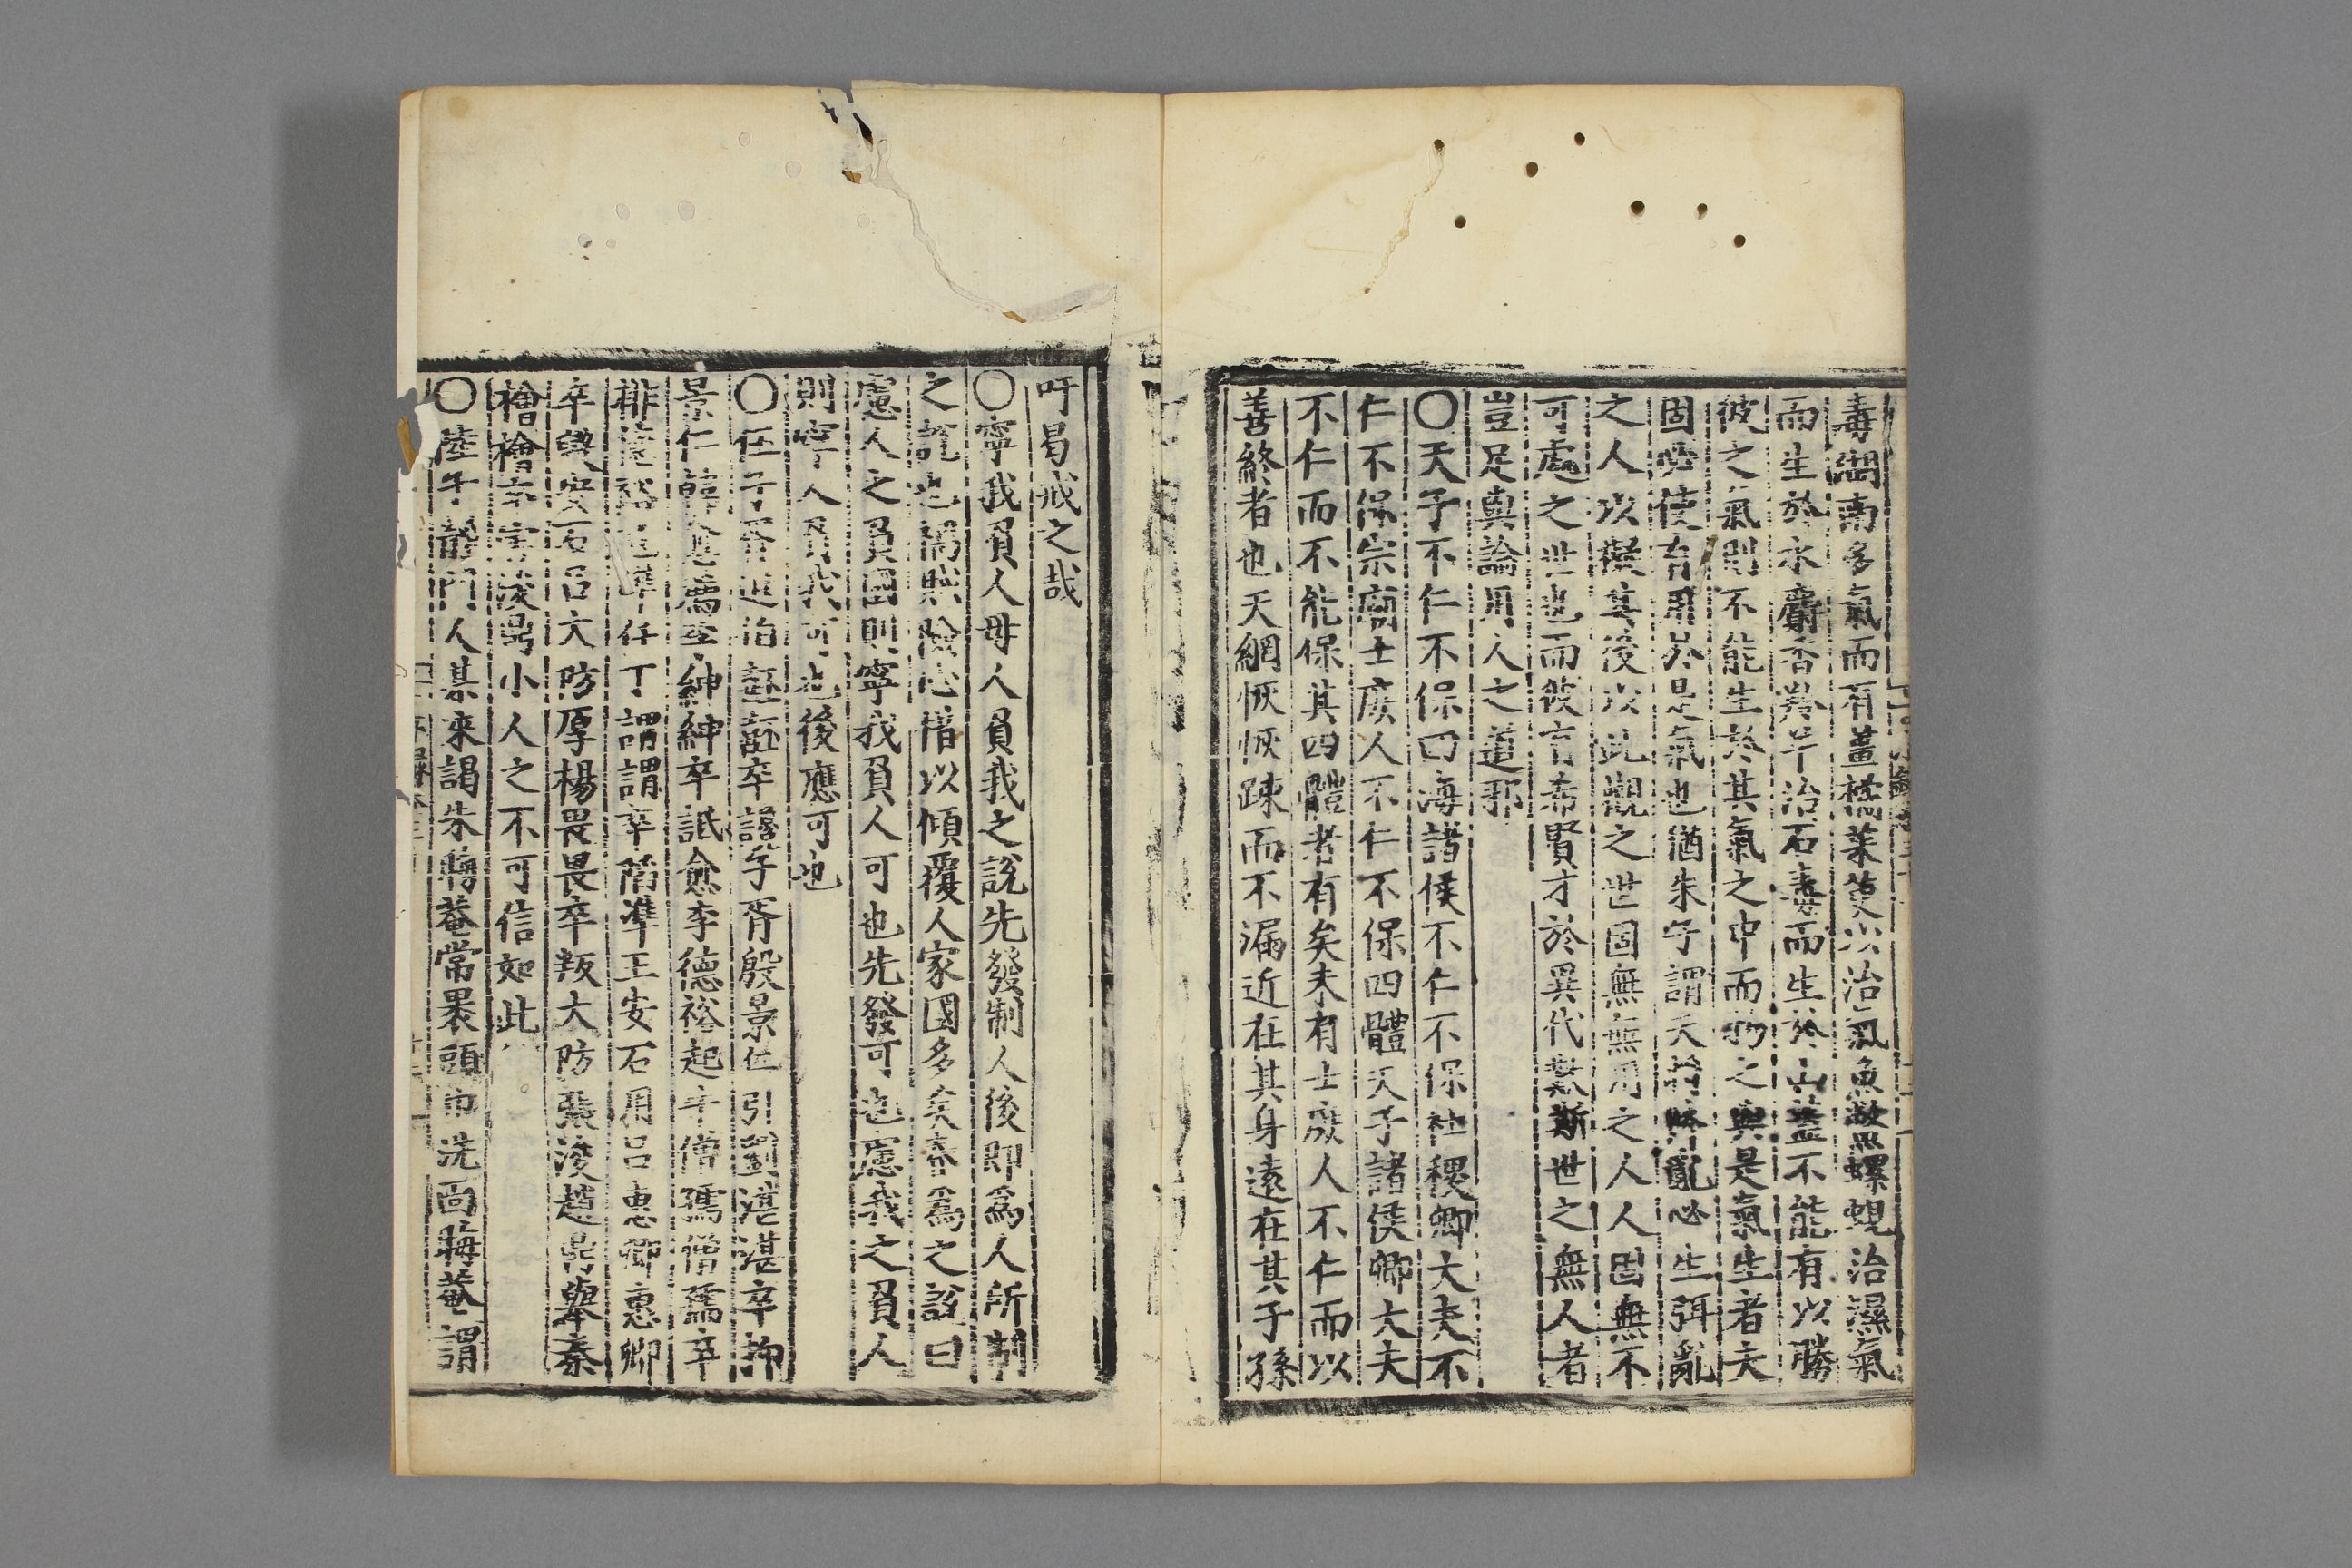 毒閩南多氣而有薑橘茱萸以治氣魚鱉螺蜆治濕氣
而生於水麝香羚羊治石毒而生於山蓋不能有以勝
彼之氣則不能生於其氣之中而物之與是氣生者夫
固必使有用於是氣也猶朱子謂天將降亂必生弭亂
之人以擬其後以此觀之世固無無用之人人固無不
可處之世也而彼有希賢才於異代歎斯世之無人者
豈足與論用人之道邪
○天子不仁不保四海諸侯不仁不保社稷卿大夫不
仁不保宗廟士庶人不仁不保四體天子諸侯卿大夫
不仁而不能保其四體者有矣未有士庶人不仁而以
善終者也天網恢恢踈而不漏近在其身遠在其子孫
吁曷戒之哉
○寧我負人毋人負我之說先發制人後即爲人所制
之說也禍賊險心借以傾覆人家國多矣夲爲之說曰
慮人之負國則寧我負人可也先發可也慮我之負人
則寧人負我可也後應可也
○任子胥進伯嚭嚭卒讒子胥殷景仁引劉湛湛卒抑
景仁韓愈薦李紳紳卒詆愈李德裕起牛僧孺僧孺卒
排德裕冦準任丁謂謂卒陷準王安石用呂惠卿惠卿
卒與安石呂大防厚楊畏畏卒叛大防張浚趙鼎舉秦
檜檜卒害浚鼎小人之不可信如此
○陸子靜門人某來謁朱晦菴常裹頭巾洗面晦菴謂